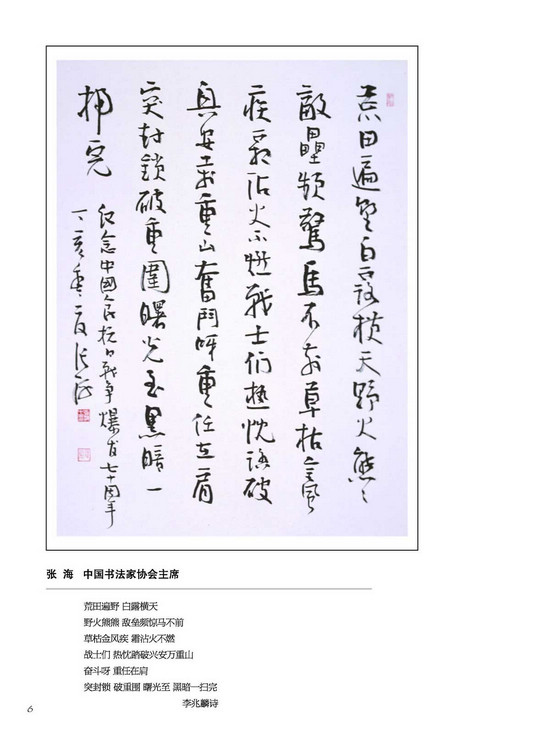 荒田遍野白露横天野火熊々
敵壘頻驚馬不前草枯金風
疾霜沾火不燃戰士们热忱踏破
興安萬重山奮鬥呀重任在肩
突封鎖破重圍曙光至黑暗一
掃完
纪念中國人民抗日戰争爆发七十周年
丁亥季夏张海
张 海 中国书法家协会主席
荒田遍野 白露横天
野火熊熊 敌垒频惊马不前
草枯金风疾 霜沾火不燃
战士们 热忱踏破兴安万重山
奋斗呀 重任在肩
突封锁 破重围 曙光至 黑暗一扫完
李兆麟诗
6